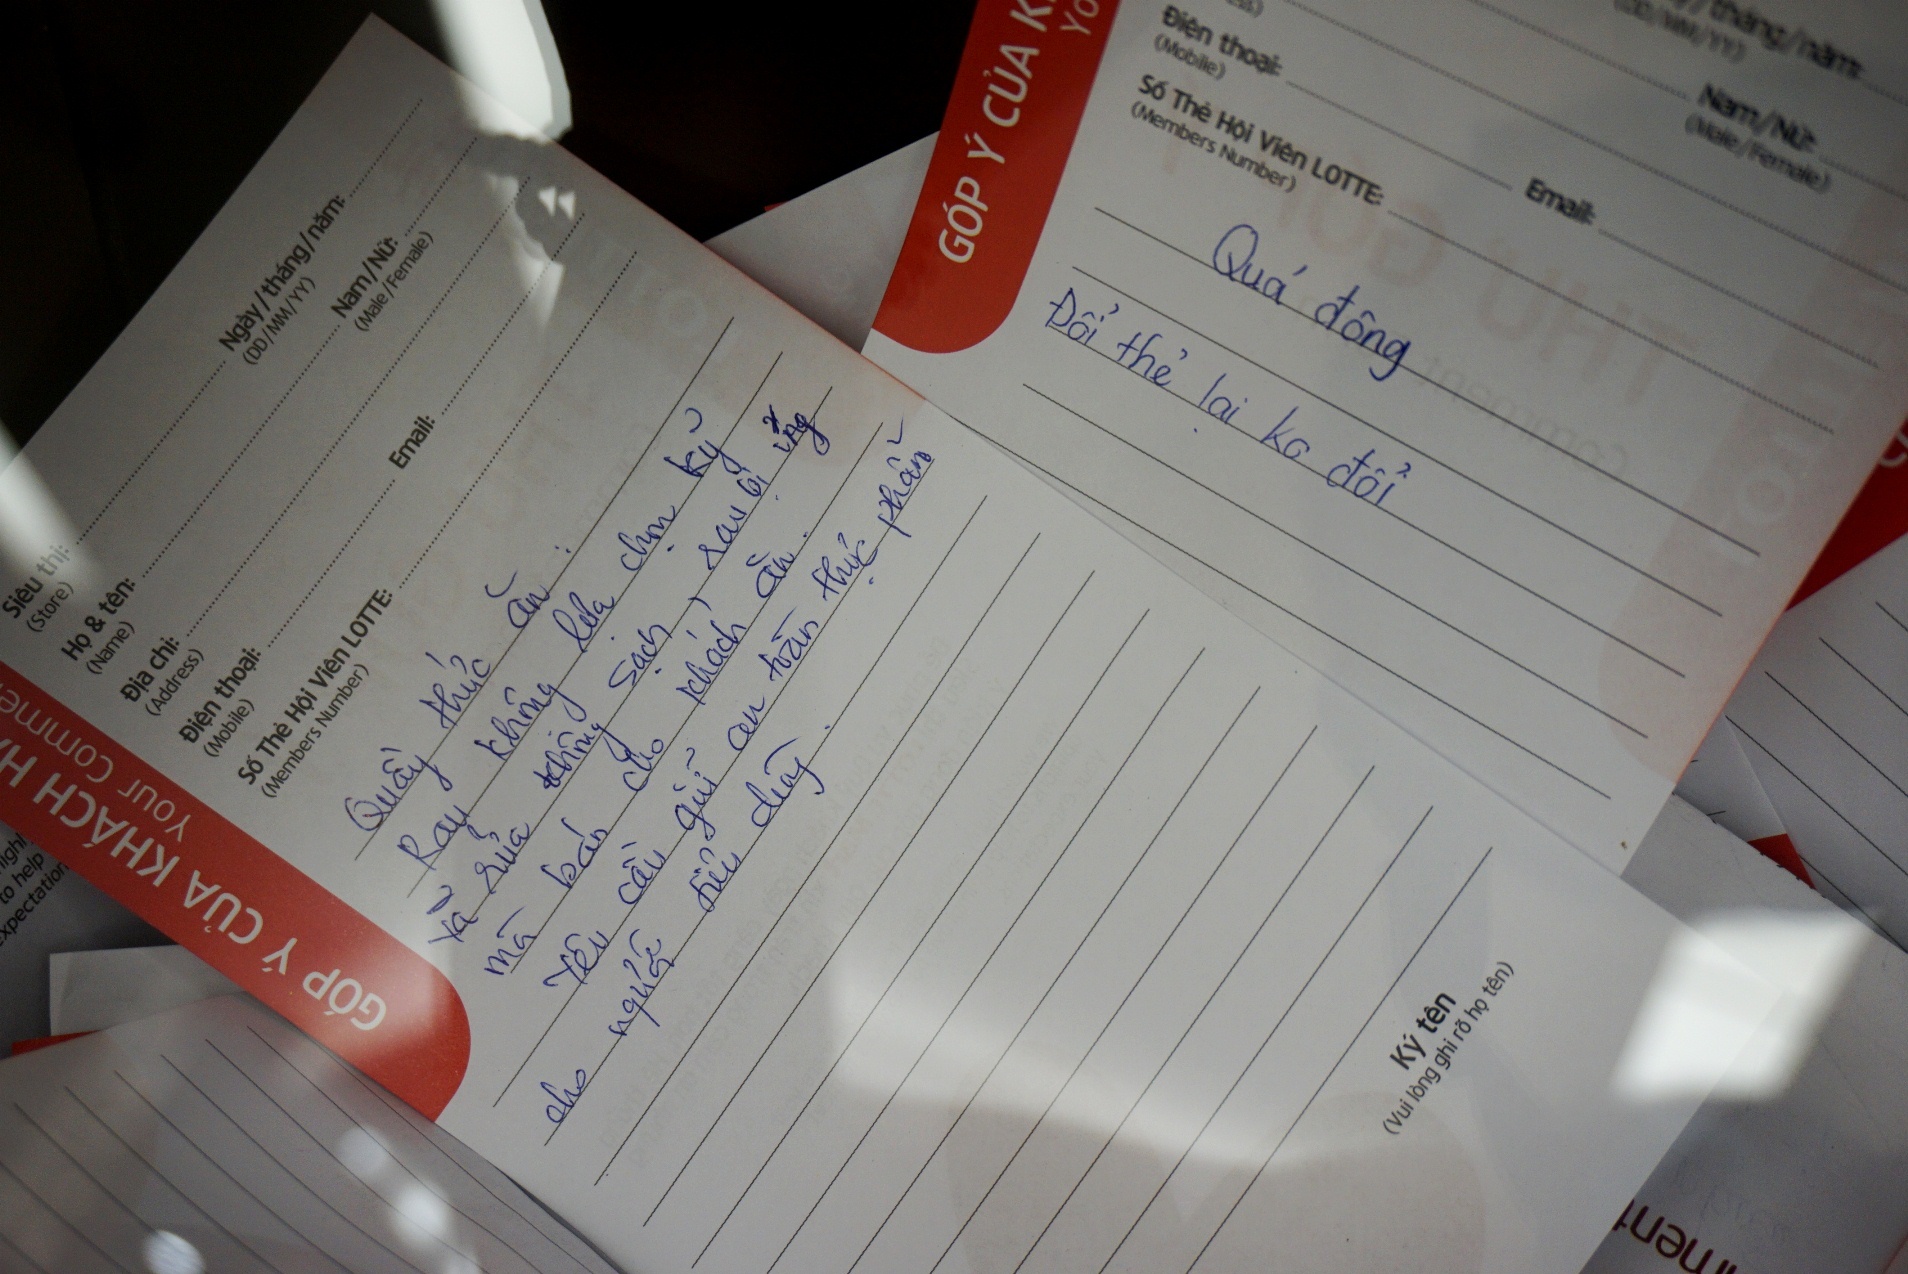 GÓP Ý CỦA KHÁCH H
Your Comme
Siêu thị:
(Store)
Ngày/tháng/năm:
(DD/MM/YY)
Họ & tên:
(Name)
Nam/Nữ:
(Male/Female)
Địa chỉ:
(Address)
Điện thoại:
(Mobile)
Email:
Số Thẻ Hội Viên LOTTE:
(Members Number)
Quầy thức ăn:
Rau không lựa chọn kỹ
và rửa không sạch, rau bị úng
mà bán cho khách ăn.
Yêu cầu giữ an toàn thực phẩm
cho người tiêu dùng.
Ký tên
(Vui lòng ghi rõ họ tên)
GÓP Ý CỦA K
Yo
tháng/năm:
(DD/MM/YY)
Điện thoại:
(Mobile)
Nam/Nữ:
(Male/Female)
Số Thẻ Hội Viên LOTTE:
(Members Number)
Email:
Quá đông
Đổi thẻ lại ko đổi
to help
expectation
ment